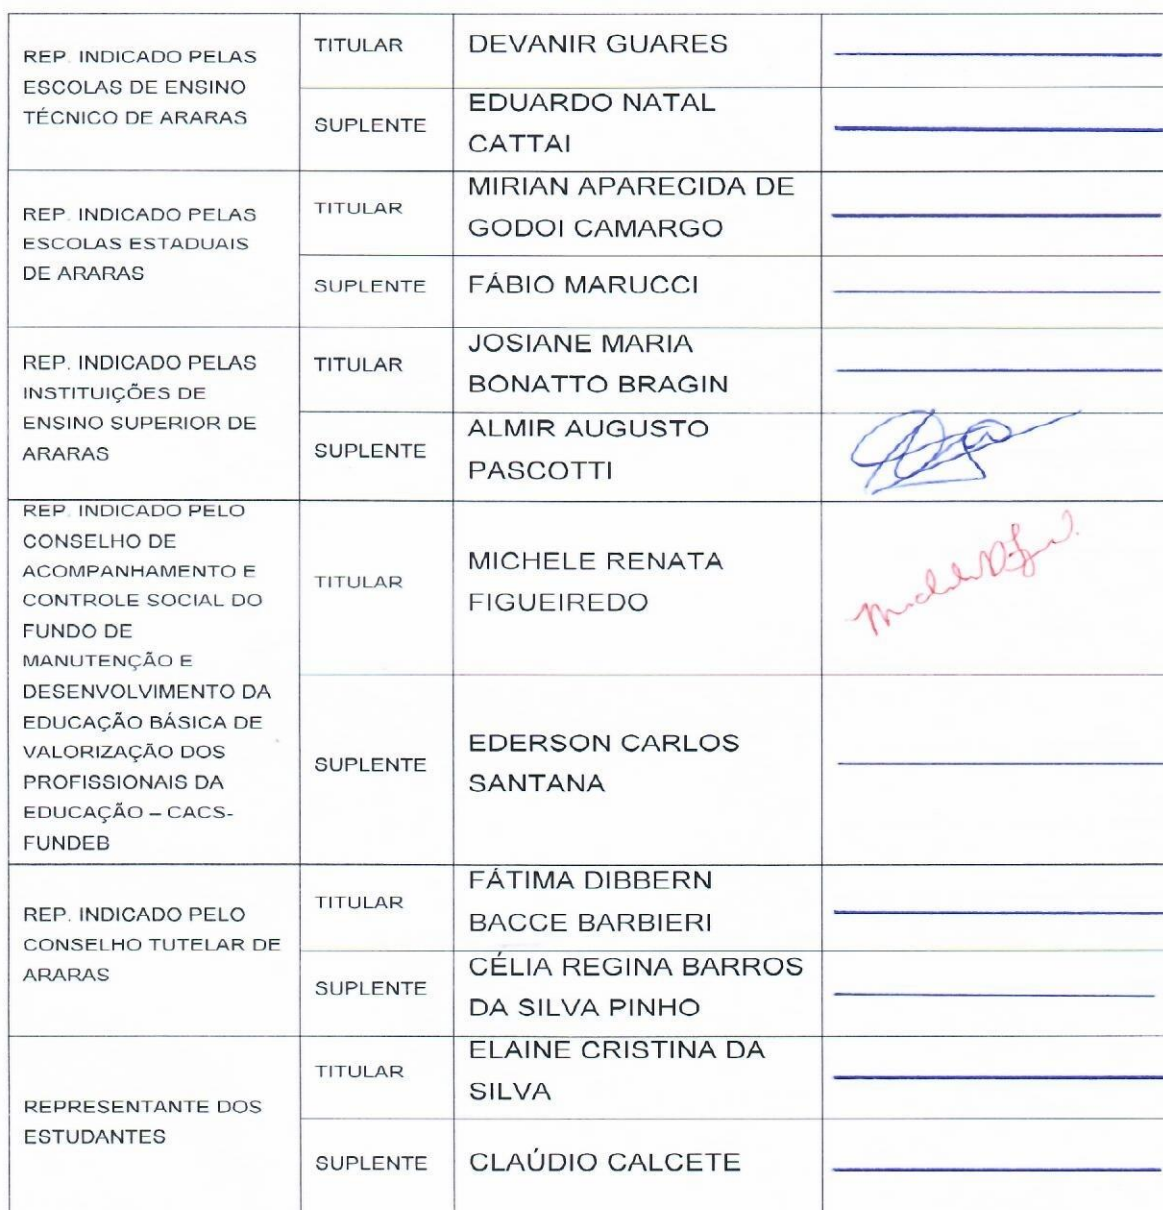 REP. INDICADO PELAS
ESCOLAS DE ENSINO
TÉCNICO DE ARARAS
TITULAR
DEVANIR GUARES
SUPLENTE
EDUARDO NATAL
CATTAI
REP. INDICADO PELAS
ESCOLAS ESTADUAIS
DE ARARAS
TITULAR
MIRIAN APARECIDA DE
GODOI CAMARGO
SUPLENTE
FÁBIO MARUCCI
REP. INDICADO PELAS
INSTITUIÇÕES DE
ENSINO SUPERIOR DE
ARARAS
TITULAR
JOSIANE MARIA
BONATTO BRAGIN
SUPLENTE
ALMIR AUGUSTO
PASCOTTI
REP. INDICADO PELO
CONSELHO DE
ACOMPANHAMENTO E
CONTROLE SOCIAL DO
FUNDO DE
MANUTENÇÃO E
DESENVOLVIMENTO DA
EDUCAÇÃO BÁSICA DE
VALORIZAÇÃO DOS
PROFISSIONAIS DA
EDUCAÇÃO – CACS-
FUNDEB
TITULAR
MICHELE RENATA
FIGUEIREDO
SUPLENTE
EDERSON CARLOS
SANTANA
REP. INDICADO PELO
CONSELHO TUTELAR DE
ARARAS
TITULAR
FÁTIMA DIBBERN
BACCE BARBIERI
SUPLENTE
CÉLIA REGINA BARROS
DA SILVA PINHO
REPRESENTANTE DOS
ESTUDANTES
TITULAR
ELAINE CRISTINA DA
SILVA
SUPLENTE
CLAÚDIO CALCETE